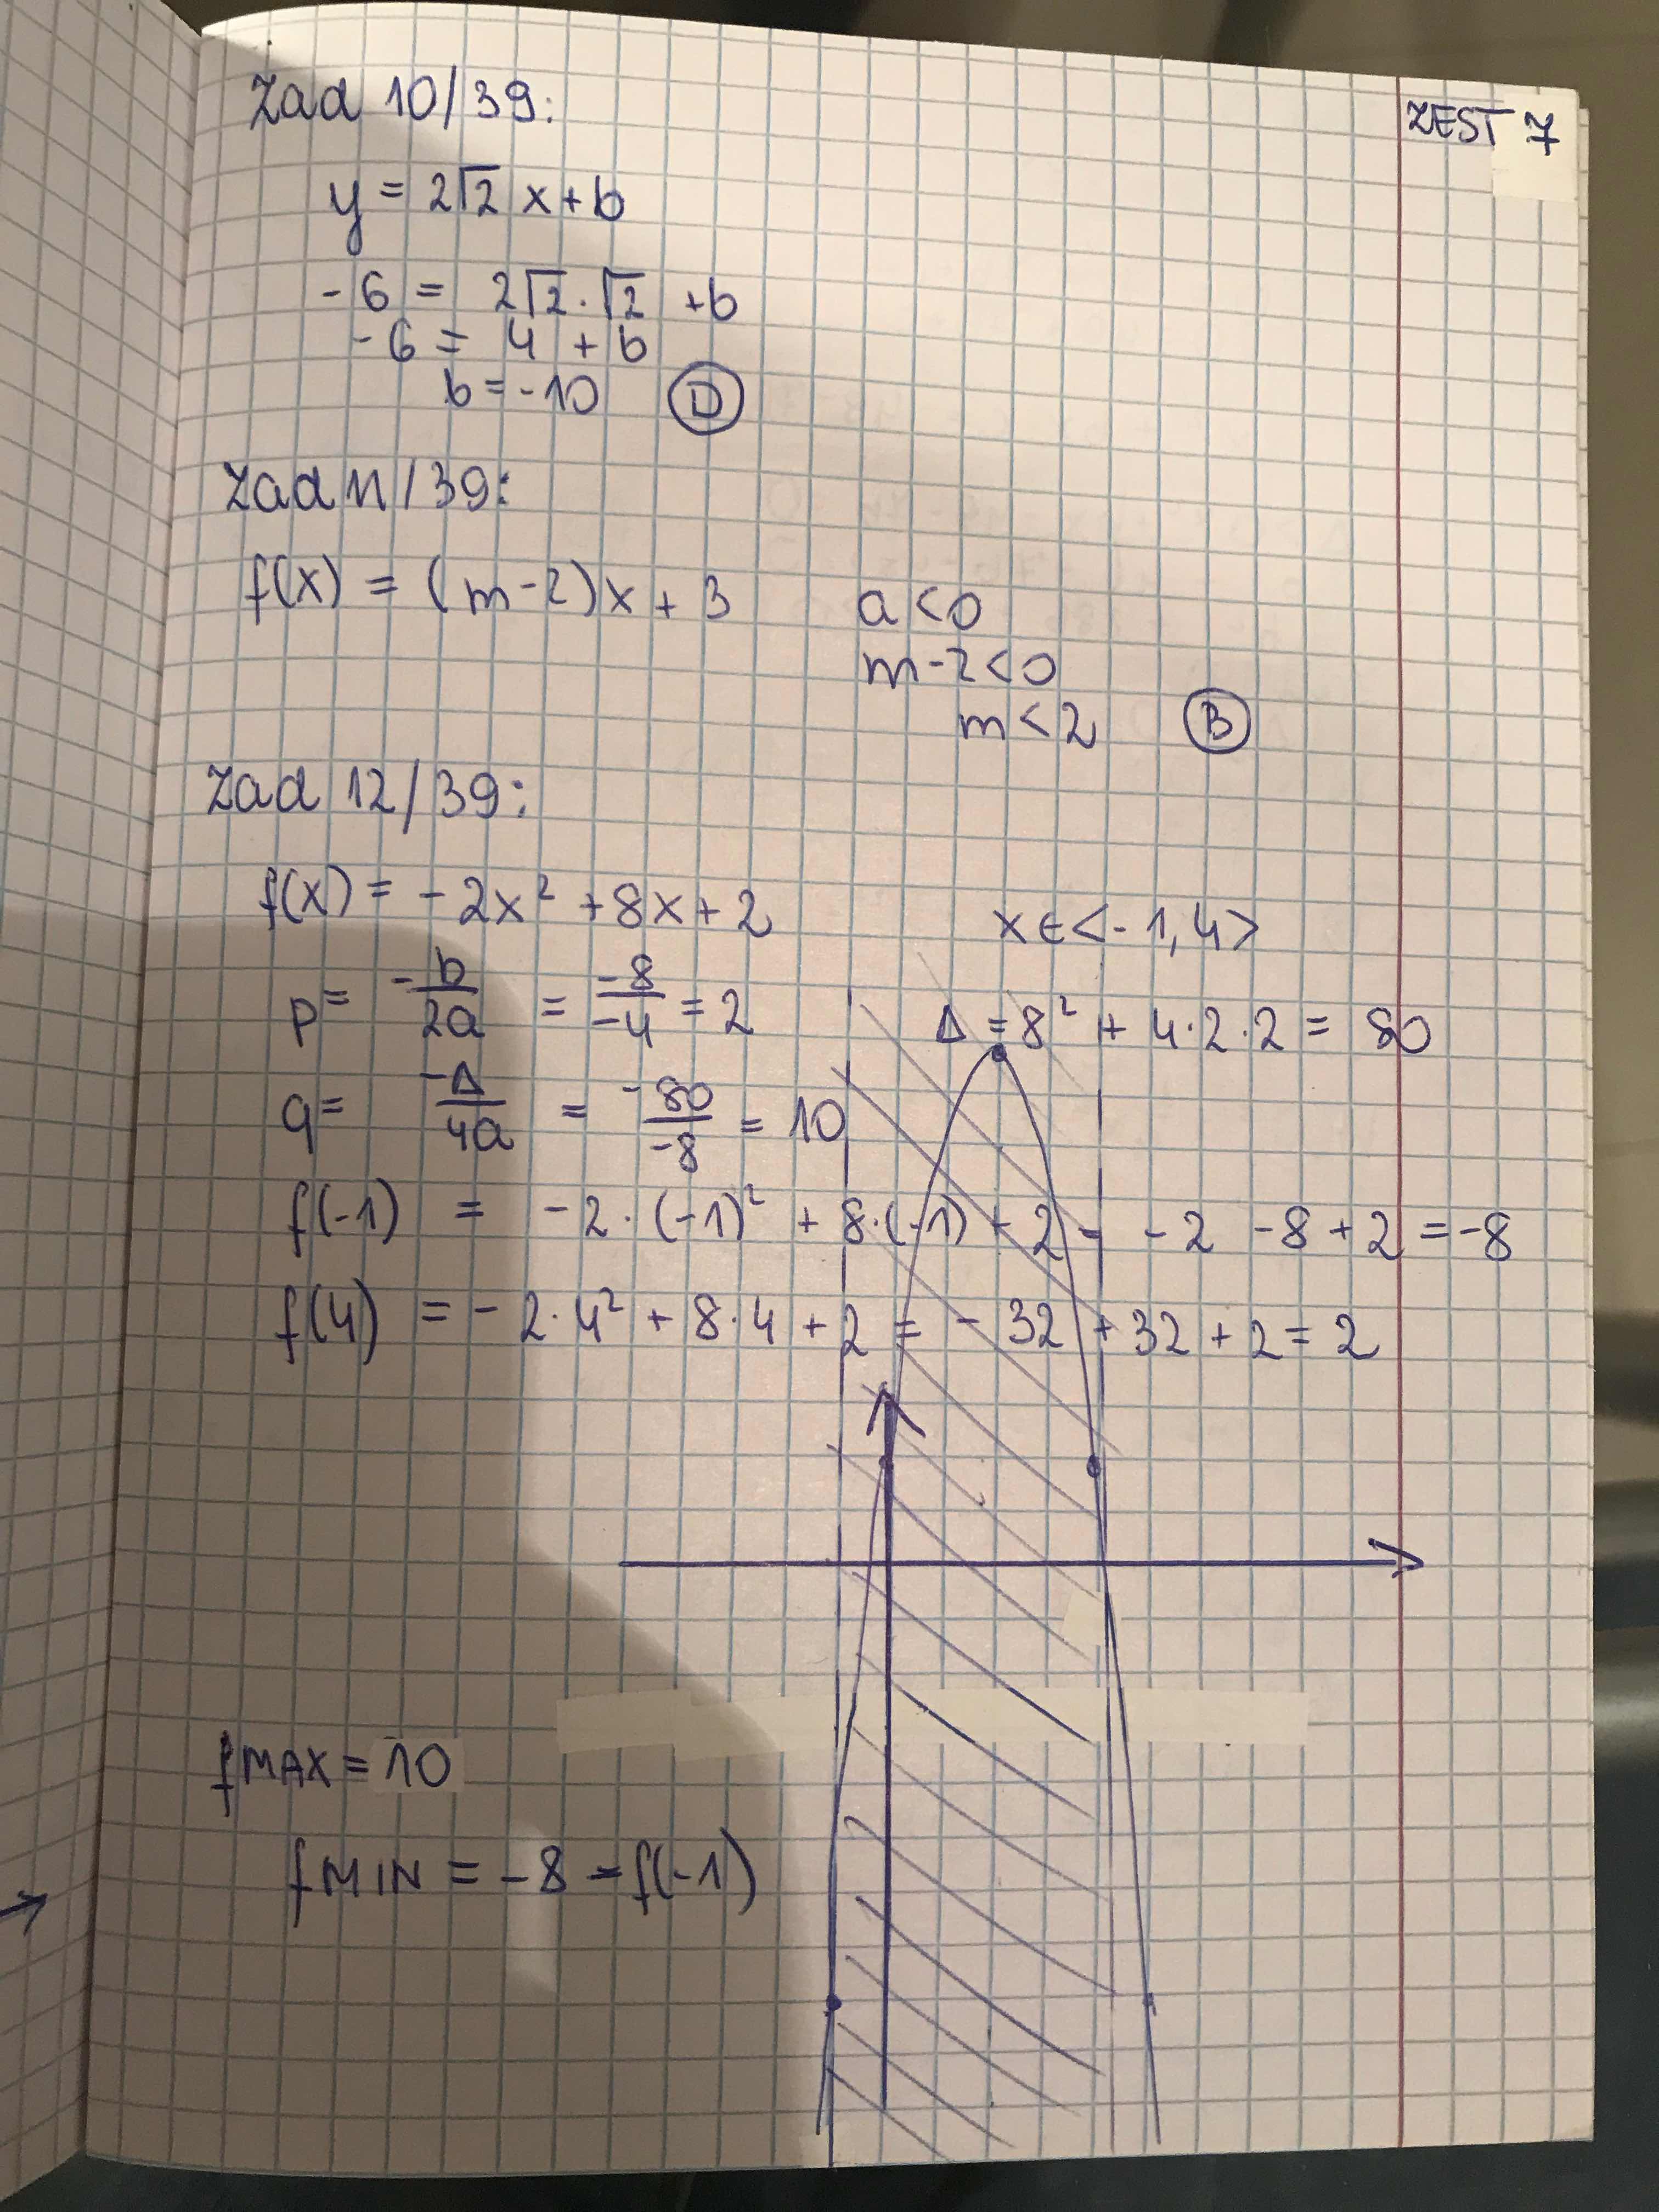 ZEST 7
Zad 10/39:
y = 2√2 x + b
-6 = 2√2 · √2 + b
-6 = 4 + b
b = -10 (D)
Zad 11/39:
f(x) = (m-2)x + 3 a < 0
m-2 < 0
m < 2 (B)
Zad 12/39:
f(x) = -2x² + 8x + 2 x ∈ <-1,4>
p = -b/2a = -8/-4 = 2 Δ = 8² + 4·2·2 = 80
q = -Δ/4a = -80/-8 = 10
f(-1) = -2·(-1)² + 8·(-1) + 2 = -2 -8 + 2 = -8
f(4) = -2·4² + 8·4 + 2 = -32 + 32 + 2 = 2
fMAX = 10
fMIN = -8 = f(-1)